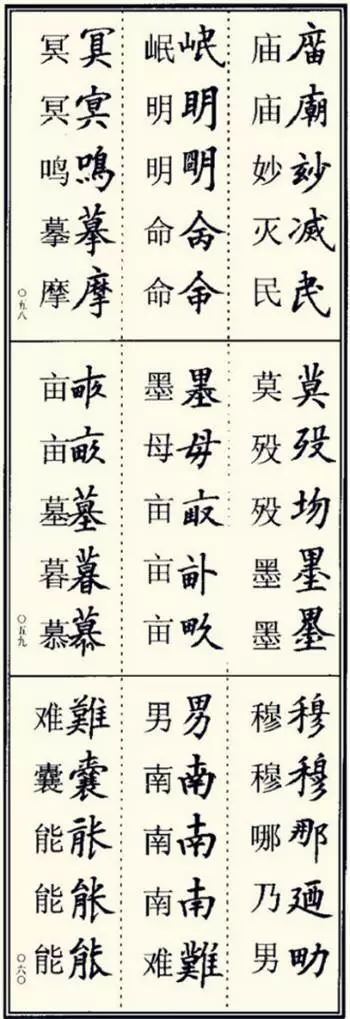 庙 庿
庙 廟
妙 玅
灭 滅
民 民
岷 岷
明 眀
明 朙
命
命 命
冥 冥
冥
鸣 鳴
摹 摹
摩 摩
〇五八
莫 莫
殁 歿
殁 圽
墨 墨
墨 墨
墨 墨
母 母
亩
亩
亩 畝
亩
亩 畝
墓 墓
暮 暮
慕 慕
〇五九
穆 穆
穆 穆
哪 那
乃 廼
男
男 男
南 南
南 南
南 南
难 難
难 難
囊 囊
能
能
能 能
〇六〇